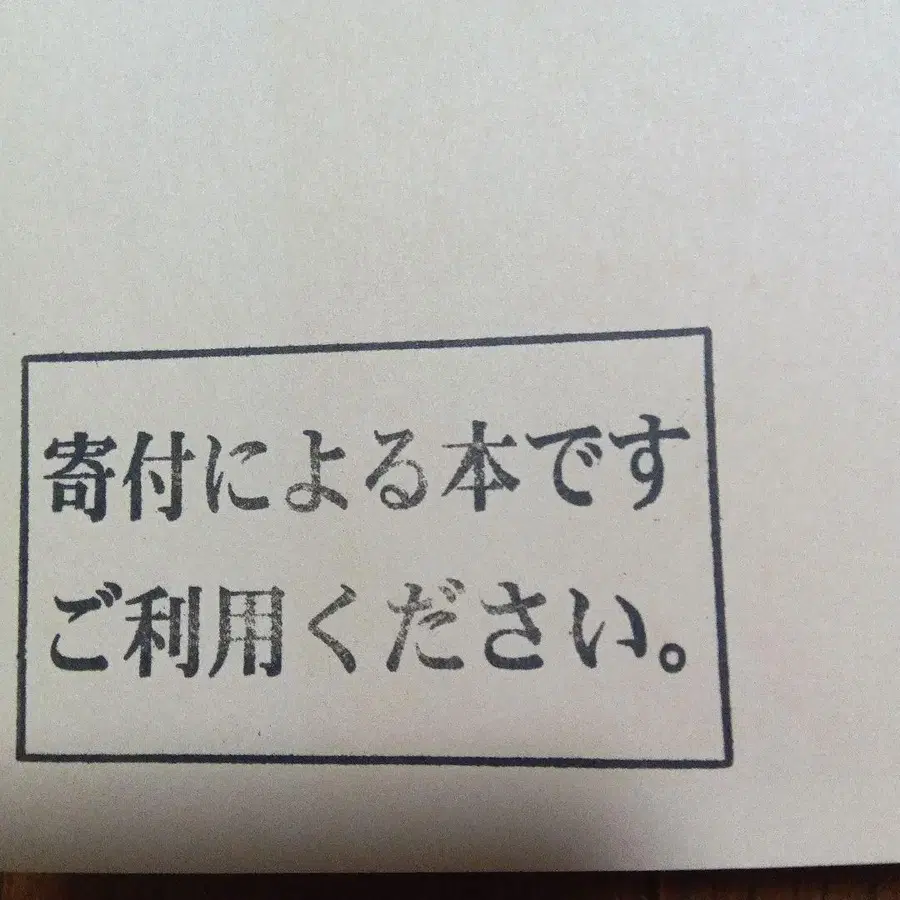 寄付による本です
ご利用ください。